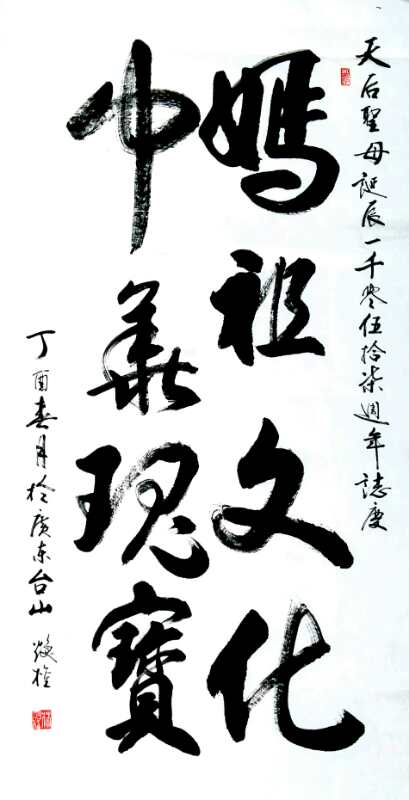 天后聖母誕辰一千零伍拾柒週年誌慶
媽祖文化
中華瑰寶
丁酉春月於廣东台山